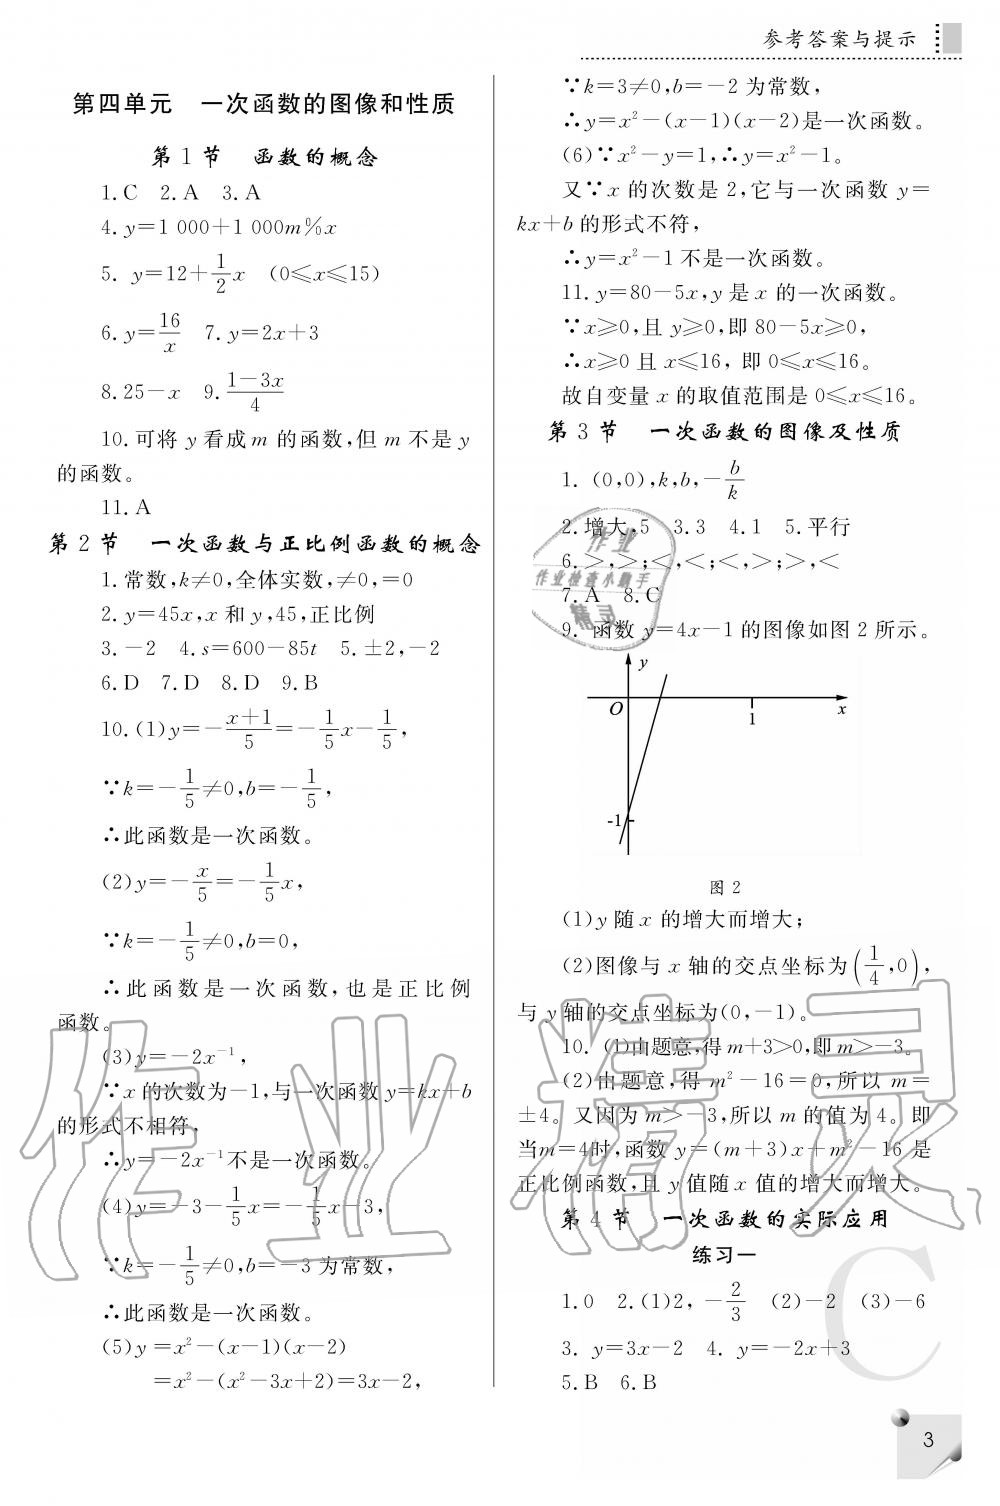 参考答案与提示
第四单元　一次函数的图像和性质
第 1 节　函数的概念
1. C　2. A　3. A
4. y=1 000+1 000m%x
5. y=12+\frac{1}{2}x　(0≤x≤15)
6. y=\frac{16}{x}　7. y=2x+3
8. 25-x　9. \frac{1-3x}{4}
10. 可将 y 看成 m 的函数,但 m 不是 y
的函数。
11. A
第 2 节　一次函数与正比例函数的概念
1. 常数,k≠0,全体实数,≠0,=0
2. y=45x,x 和 y,45,正比例
3. -2　4. s=600-85t　5. ±2,-2
6. D　7. D　8. D　9. B
10. (1)y=-\frac{x+1}{5}=-\frac{1}{5}x-\frac{1}{5},
∵k=-\frac{1}{5}≠0,b=-\frac{1}{5},
∴此函数是一次函数。
(2)y=-\frac{x}{5}=-\frac{1}{5}x,
∵k=-\frac{1}{5}≠0,b=0,
∴此函数是一次函数,也是正比例
函数。
(3)y=-2x^{-1},
∵x 的次数为-1,与一次函数 y=kx+b
的形式不相符,
∴y=-2x^{-1}不是一次函数。
(4)y=-3-\frac{1}{5}x=-\frac{1}{5}x-3,
∵k=-\frac{1}{5}≠0,b=-3 为常数,
∴此函数是一次函数。
(5)y=x²-(x-1)(x-2)
=x²-(x²-3x+2)=3x-2,
∵k=3≠0,b=-2 为常数,
∴y=x²-(x-1)(x-2)是一次函数。
(6)∵x²-y=1,∴y=x²-1。
又∵x 的次数是 2,它与一次函数 y=
kx+b 的形式不符,
∴y=x²-1 不是一次函数。
11. y=80-5x,y 是 x 的一次函数。
∵x≥0,且 y≥0,即 80-5x≥0,
∴x≥0 且 x≤16, 即 0≤x≤16。
故自变量 x 的取值范围是 0≤x≤16。
第 3 节　一次函数的图像及性质
1. (0,0),k,b,-\frac{b}{k}
2. 增大,5　3. 3　4. 1　5. 平行
6. >,>;<,<;<,>;>,<
7. A　8. C
9. 函数 y=4x-1 的图像如图 2 所示。
y
O
1
x
-1
图 2
(1)y 随 x 的增大而增大;
(2)图像与 x 轴的交点坐标为(\frac{1}{4},0),
与 y 轴的交点坐标为(0,-1)。
10. (1)由题意,得 m+3>0,即 m>-3。
(2)由题意,得 m²-16=0,所以 m=
±4。又因为 m>-3,所以 m 的值为 4。即
当m=4时,函数 y=(m+3)x+m²-16 是
正比例函数,且 y 值随 x 值的增大而增大。
第 4 节　一次函数的实际应用
练习一
1. 0　2. (1)2, -\frac{2}{3}　(2)-2　(3)-6
3. y=3x-2　4. y=-2x+3
5. B　6. B
3
作业
作业检查小助手
精灵
作业精灵
C